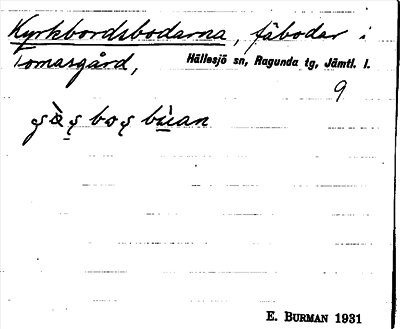 Kyrkbordsbodarna, fäbodar i
Tomasgård, Hällesjö sn, Ragunda tg, Jämtl. l.
9
E. BURMAN 1931